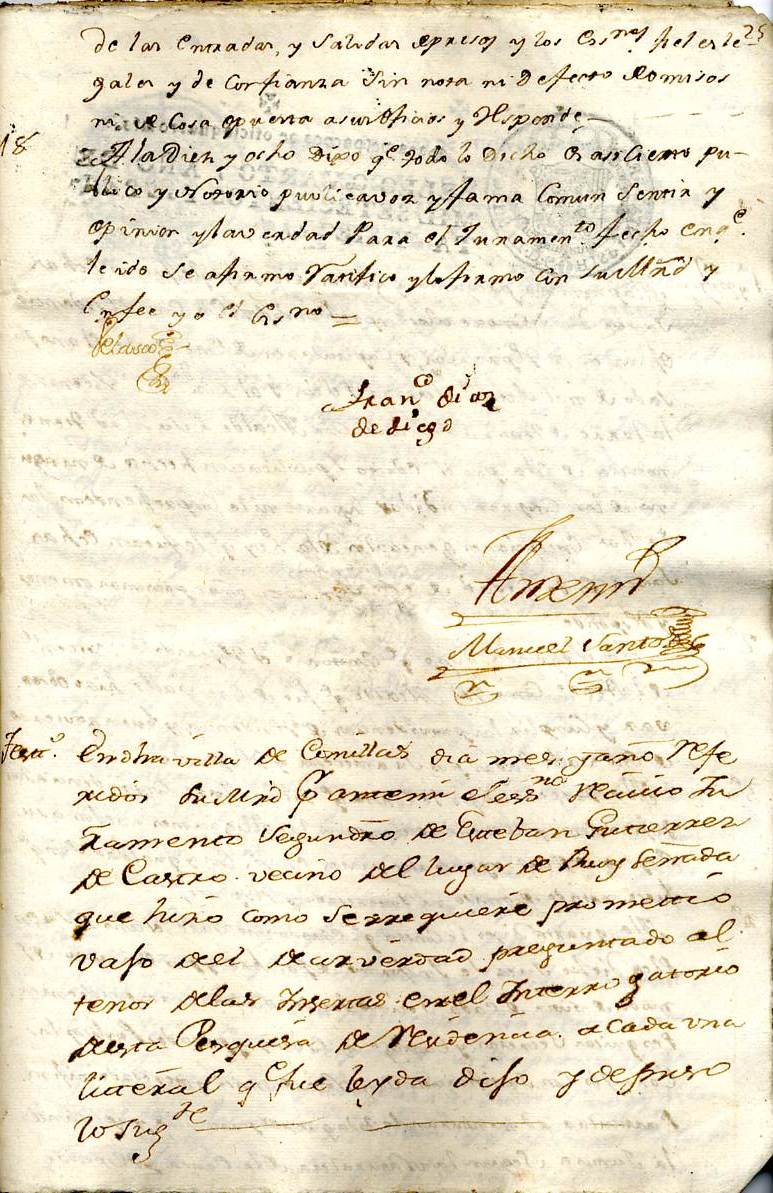 25
de las entradas, y salidas de presos y los Esnos fieles le
gales y de Confianza Sin nota ni Defecto Remisos
ni de Cosa opuesta a sus oficios y responde
18 A la Diez y ocho Dijo qe todo lo Dicho es cierto pu-
blico y notorio publica voz y fama Comun Sentir y
opinion y la verdad Para el Juramento fecho en qe
leido Se afirmo Ratifico y lo firmo con su Mrd y
en fee yo el Esno
Velasco
Franco diaz
de diego
Antemi
Manuel Santos
Testo En dha villa de Comillas dia mes y año Refe
ridos su Mrd P antemi el essno Recivio Ju
ramento segun dro de Esteban Gutierrez
de Castro vecino del lugar de Ruyseñada
que hizo como se rrequiere prometio
vajo del decir verdad preguntado al
tenor de las Insertas en el Interrogatorio
desta Pesquisa de Residencia a Cada una
litteral qe fue leyda dijo y depuso
lo sigte